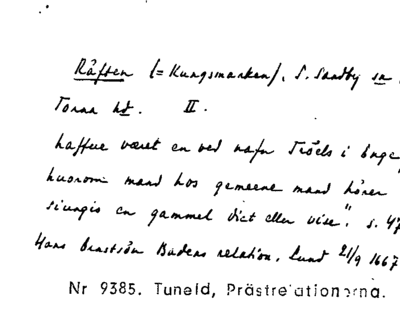 Råften (= Kungsmarken), S. Sandby sn
Torna hd. II.
haffue været en ved nafn Troels i Enge,
huorom mand hos gemeene mand hörer
siungis en gammel vict eller vise". s. 47
Hans Bendsön Badens relation. Lund 21/9 1667
Nr 9385. Tuneld, Prästrelationerna.